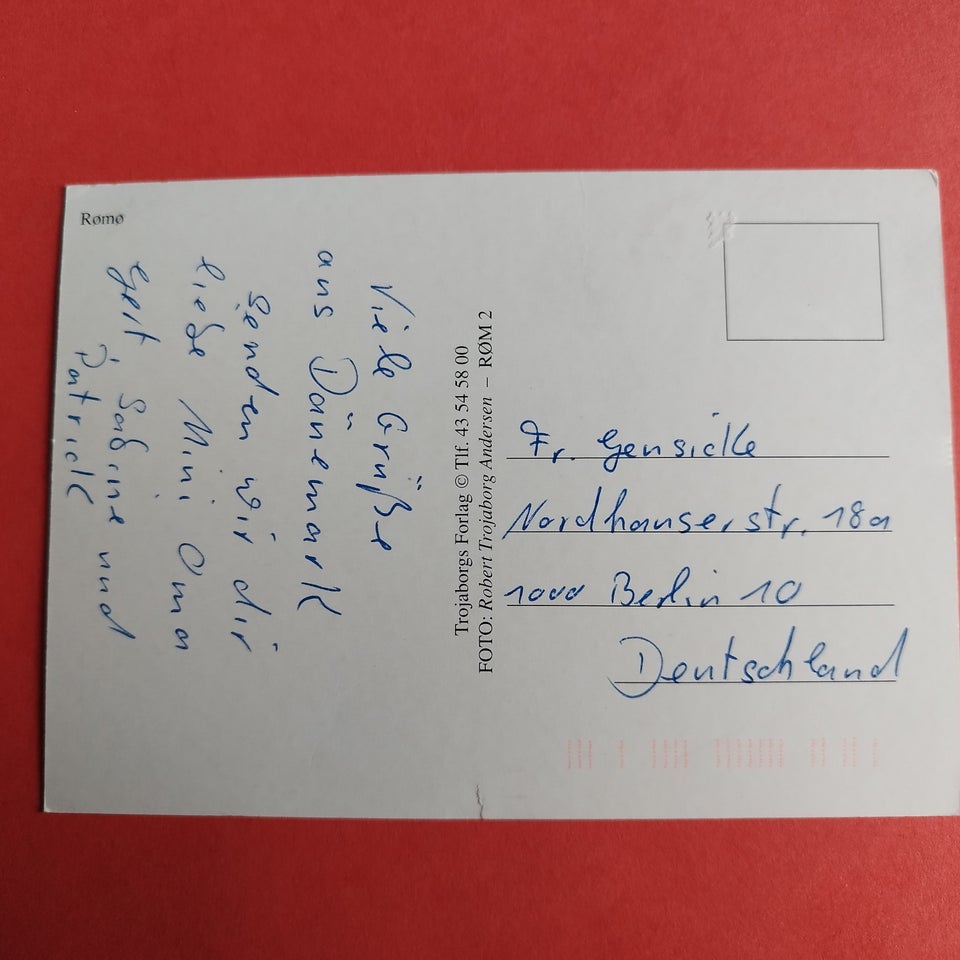 Rømø
Viele Grüße
aus Dänemark
senden wir dir
liebe Mini Oma
Gert, Sabine und
Patrick
Trojaborgs Forlag © Tlf. 43 54 58 00
FOTO: Robert Trojaborg Andersen – RØM 2
Fr. Gensicke
Nordhauserstr. 18a
1000 Berlin 10
Deutschland